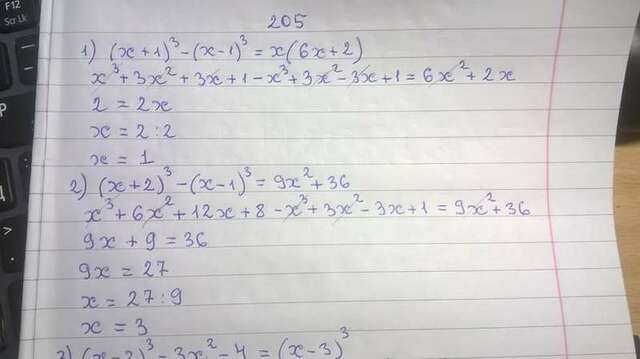 F12
Scr Lk
205
1) (x+1)³-(x-1)³=x(6x+2)
x³+3x²+3x+1-x³+3x²-3x+1=6x²+2x
2=2x
x=2:2
x=1
2) (x+2)³-(x-1)³=9x²+36
x³+6x²+12x+8-x³+3x²-3x+1=9x²+36
9x+9=36
9x=27
x=27:9
x=3
3) (x-2)³-3x²-4=(x-3)³